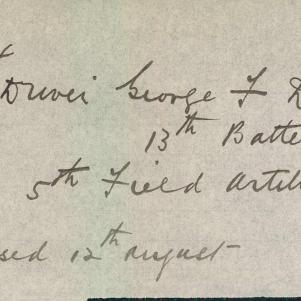 Driver George F D
13th Batte
5th Field Artil
sed 12th August